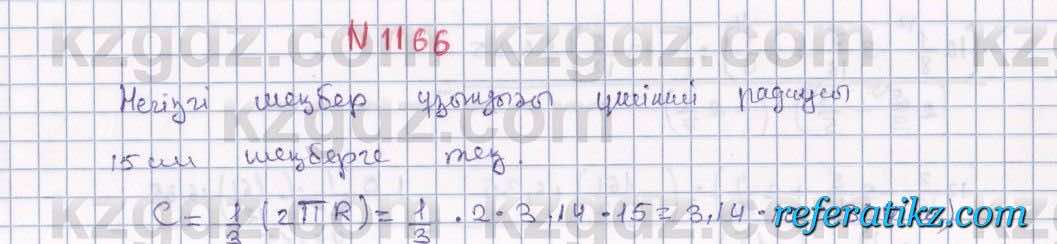 N 1166
Негізгі шеңбер ұзындығы үшінші радиусы
15 см шеңберге тең.
C = 1/3 (2πR) = 1/3 · 2 · 3,14 · 15 = 3,14 ·
kzgdz.com
referatikz.com